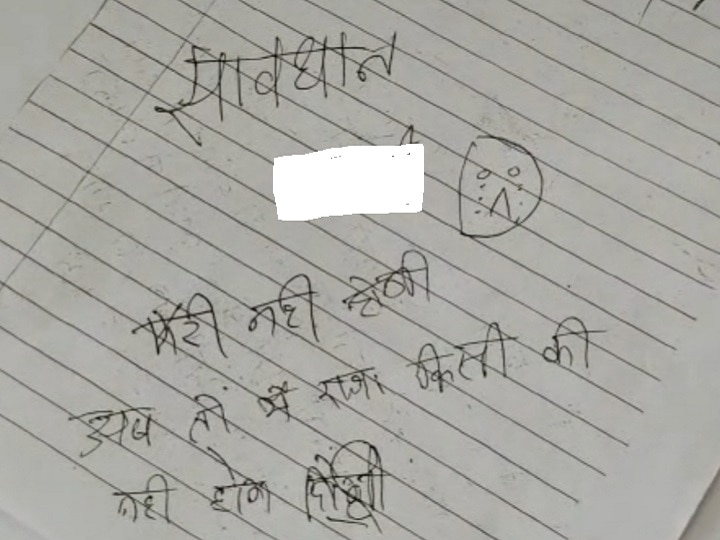 सावधान
मेरी नही होगी
अब तो मै राजा किसी की
नही होने